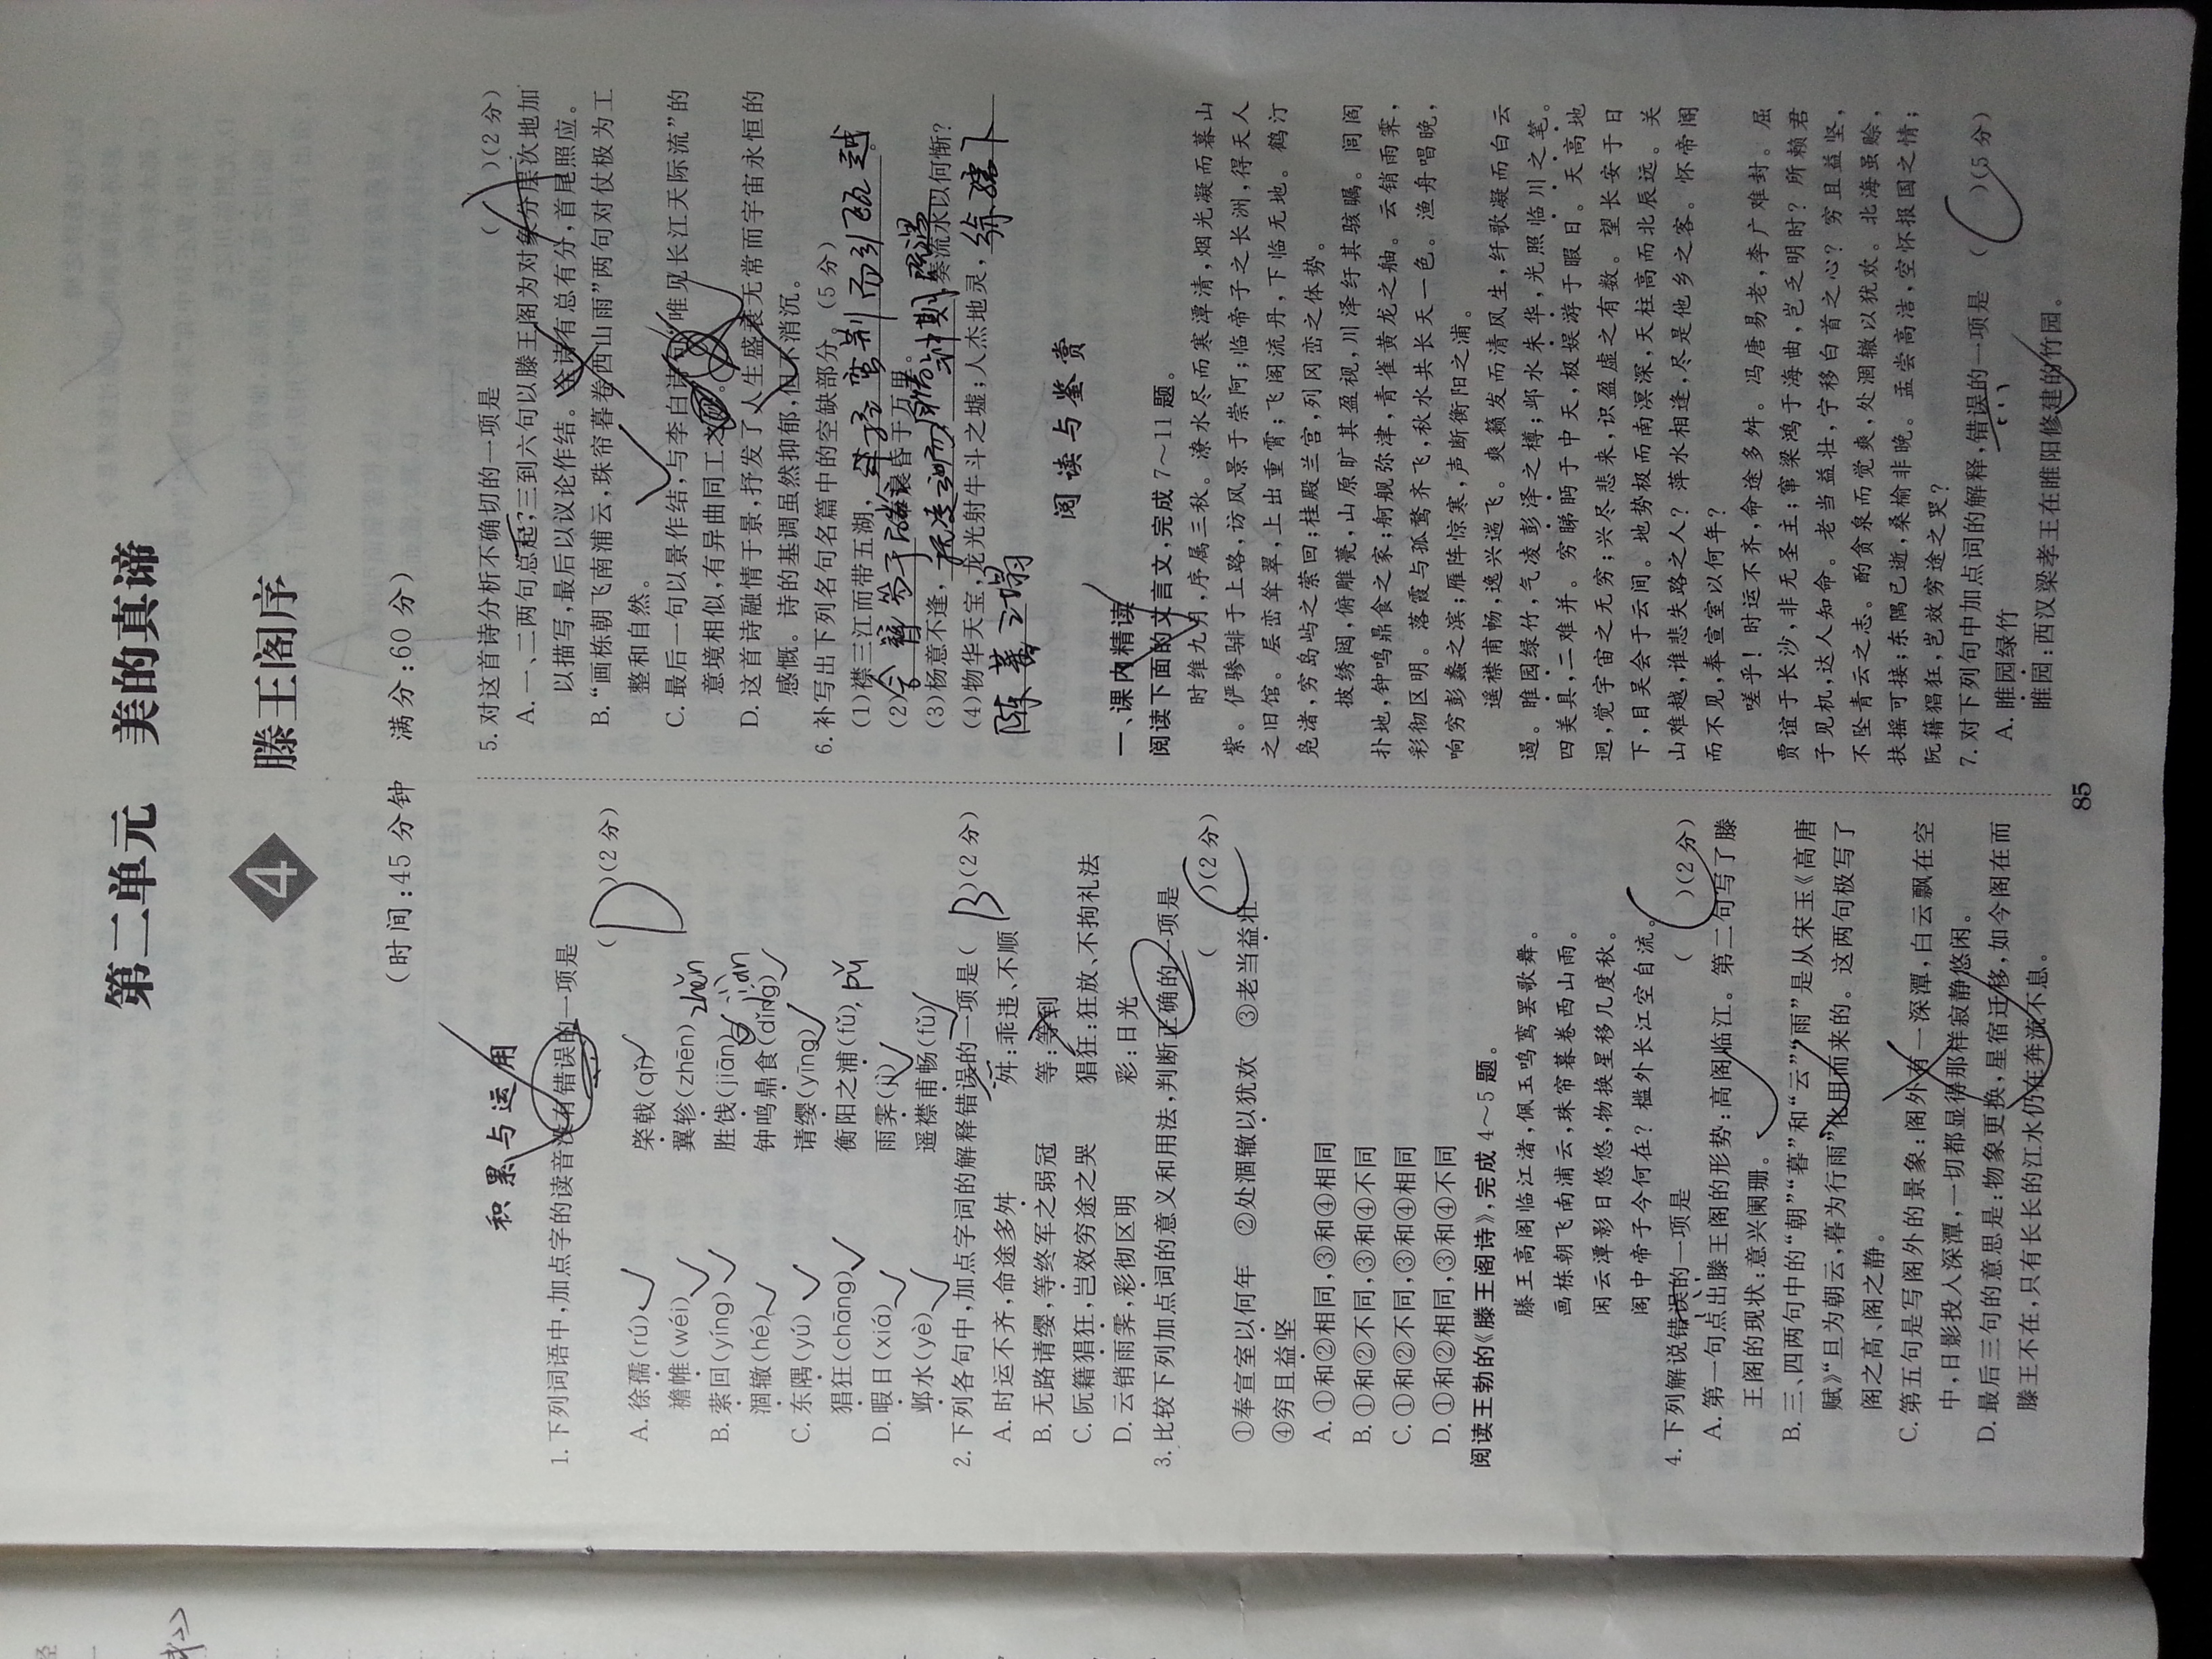 第二单元 美的真谛
4 滕王阁序
(时间:45分钟 满分:60分)
积累与运用
1.下列词语中,加点字的读音没有错误的一项是
( D )(2分)
A.徐孺(rú) 棨戟(qǐ)
襜帷(wéi) 翼轸(zhēn) zhěn
B.萦回(yíng) 胜饯(jiān) jiàn
涸辙(hé) 钟鸣鼎食(dǐng)
C.东隅(yú) 请缨(yīng)
猖狂(chāng) 衡阳之浦(fǔ) pǔ
D.暇日(xiá) 雨霁(jì)
邺水(yè) 遥襟甫畅(fǔ)
2.下列各句中,加点字词的解释错误的一项是( B )(2分)
A.时运不齐,命途多舛 舛:乖违、不顺
B.无路请缨,等终军之弱冠 等:等到
C.阮籍猖狂,岂效穷途之哭 猖狂:狂放、不拘礼法
D.云销雨霁,彩彻区明 彩:日光
3.比较下列加点词的意义和用法,判断正确的一项是
( C )(2分)
①奉宣室以何年 ②处涸辙以犹欢 ③老当益壮
④穷且益坚
A.①和②相同,③和④相同
B.①和②不同,③和④不同
C.①和②不同,③和④相同
D.①和②相同,③和④不同
阅读王勃的《滕王阁诗》,完成4～5题。
滕王高阁临江渚,佩玉鸣鸾罢歌舞。
画栋朝飞南浦云,珠帘暮卷西山雨。
闲云潭影日悠悠,物换星移几度秋。
阁中帝子今何在?槛外长江空自流。
4.下列解说错误的一项是 ( C )(2分)
A.第一句点出滕王阁的形势:高阁临江。第二句写了滕
王阁的现状:意兴阑珊。
B.三、四两句中的“朝”“暮”和“云”“雨”是从宋玉《高唐
赋》“旦为朝云,暮为行雨”化用而来的。这两句极写了
阁之高、阁之静。
C.第五句是写阁外的景象:阁外有一深潭,白云飘在空
中,日影投入深潭,一切都显得那样寂静悠闲。
D.最后三句的意思是:物象更换,星宿迁移,如今阁在而
滕王不在,只有长长的江水仍在奔流不息。
5.对这首诗分析不确切的一项是 ( A )(2分)
A.一、二两句总起;三到六句以滕王阁为对象分层次地加
以描写,最后以议论作结。全诗有总有分,首尾照应。
B.“画栋朝飞南浦云,珠帘暮卷西山雨”两句对仗极为工
整和自然。
C.最后一句以景作结,与李白诗句“唯见长江天际流”的
意境相似,有异曲同工之妙。
D.这首诗融情于景,抒发了人生盛衰无常而宇宙永恒的
感慨。诗的基调虽然抑郁,但不消沉。
6.补写出下列名句名篇中的空缺部分。(5分)
(1)襟三江而带五湖, 蛮荆而引瓯越
(2)舍簪笏于百龄,奉晨昏于万里。
(3)杨意不逢,抚凌云而自惜;钟期既遇,奏流水以何惭?
(4)物华天宝,龙光射牛斗之墟;人杰地灵,徐孺下
陈蕃之榻
阅读与鉴赏
一、课内精读
阅读下面的文言文,完成7～11题。
时维九月,序属三秋。潦水尽而寒潭清,烟光凝而暮山
紫。俨骖騑于上路,访风景于崇阿;临帝子之长洲,得天人
之旧馆。层峦耸翠,上出重霄;飞阁流丹,下临无地。鹤汀
凫渚,穷岛屿之萦回;桂殿兰宫,列冈峦之体势。
披绣闼,俯雕甍,山原旷其盈视,川泽纡其骇瞩。闾阎
扑地,钟鸣鼎食之家;舸舰弥津,青雀黄龙之舳。云销雨霁,
彩彻区明。落霞与孤鹜齐飞,秋水共长天一色。渔舟唱晚,
响穷彭蠡之滨;雁阵惊寒,声断衡阳之浦。
遥襟甫畅,逸兴遄飞。爽籁发而清风生,纤歌凝而白云
遏。睢园绿竹,气凌彭泽之樽;邺水朱华,光照临川之笔。
四美具,二难并。穷睇眄于中天,极娱游于暇日。天高地
迥,觉宇宙之无穷;兴尽悲来,识盈虚之有数。望长安于日
下,目吴会于云间。地势极而南溟深,天柱高而北辰远。关
山难越,谁悲失路之人?萍水相逢,尽是他乡之客。怀帝阍
而不见,奉宣室以何年?
嗟乎!时运不齐,命途多舛。冯唐易老,李广难封。屈
贾谊于长沙,非无圣主;窜梁鸿于海曲,岂乏明时?所赖君
子见机,达人知命。老当益壮,宁移白首之心?穷且益坚,
不坠青云之志。酌贪泉而觉爽,处涸辙以犹欢。北海虽赊,
扶摇可接;东隅已逝,桑榆非晚。孟尝高洁,空怀报国之情;
阮籍猖狂,岂效穷途之哭?
7.对下列句中加点词的解释,错误的一项是 ( C )(5分)
A.睢园绿竹
睢园:西汉梁孝王在睢阳修建的竹园。
85